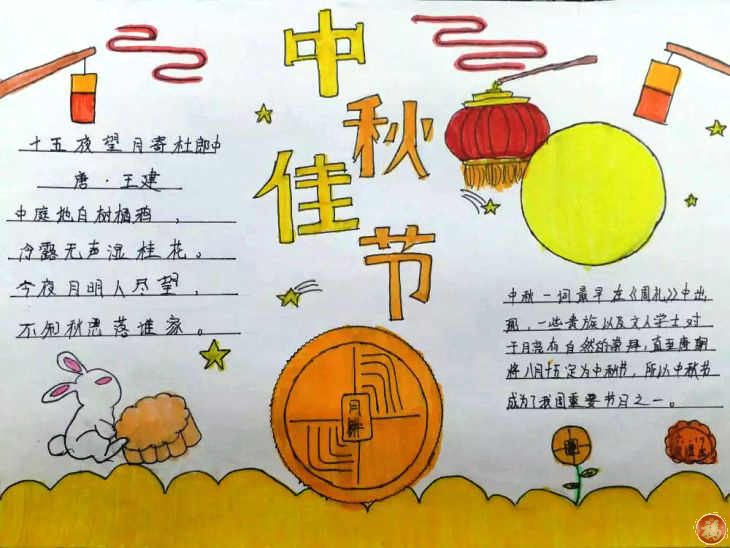 中秋佳节
十五夜望月寄杜郎中
唐·王建
中庭地白树栖鸦，
冷露无声湿桂花。
今夜月明人尽望，
不知秋思落谁家。
中秋一词最早在《周礼》中出
现，一些贵族以及文人学士对
于月亮有自然的崇拜，直至唐朝
将八月十五定为中秋节，所以中秋节
成为了我国重要节日之一。
月饼
福